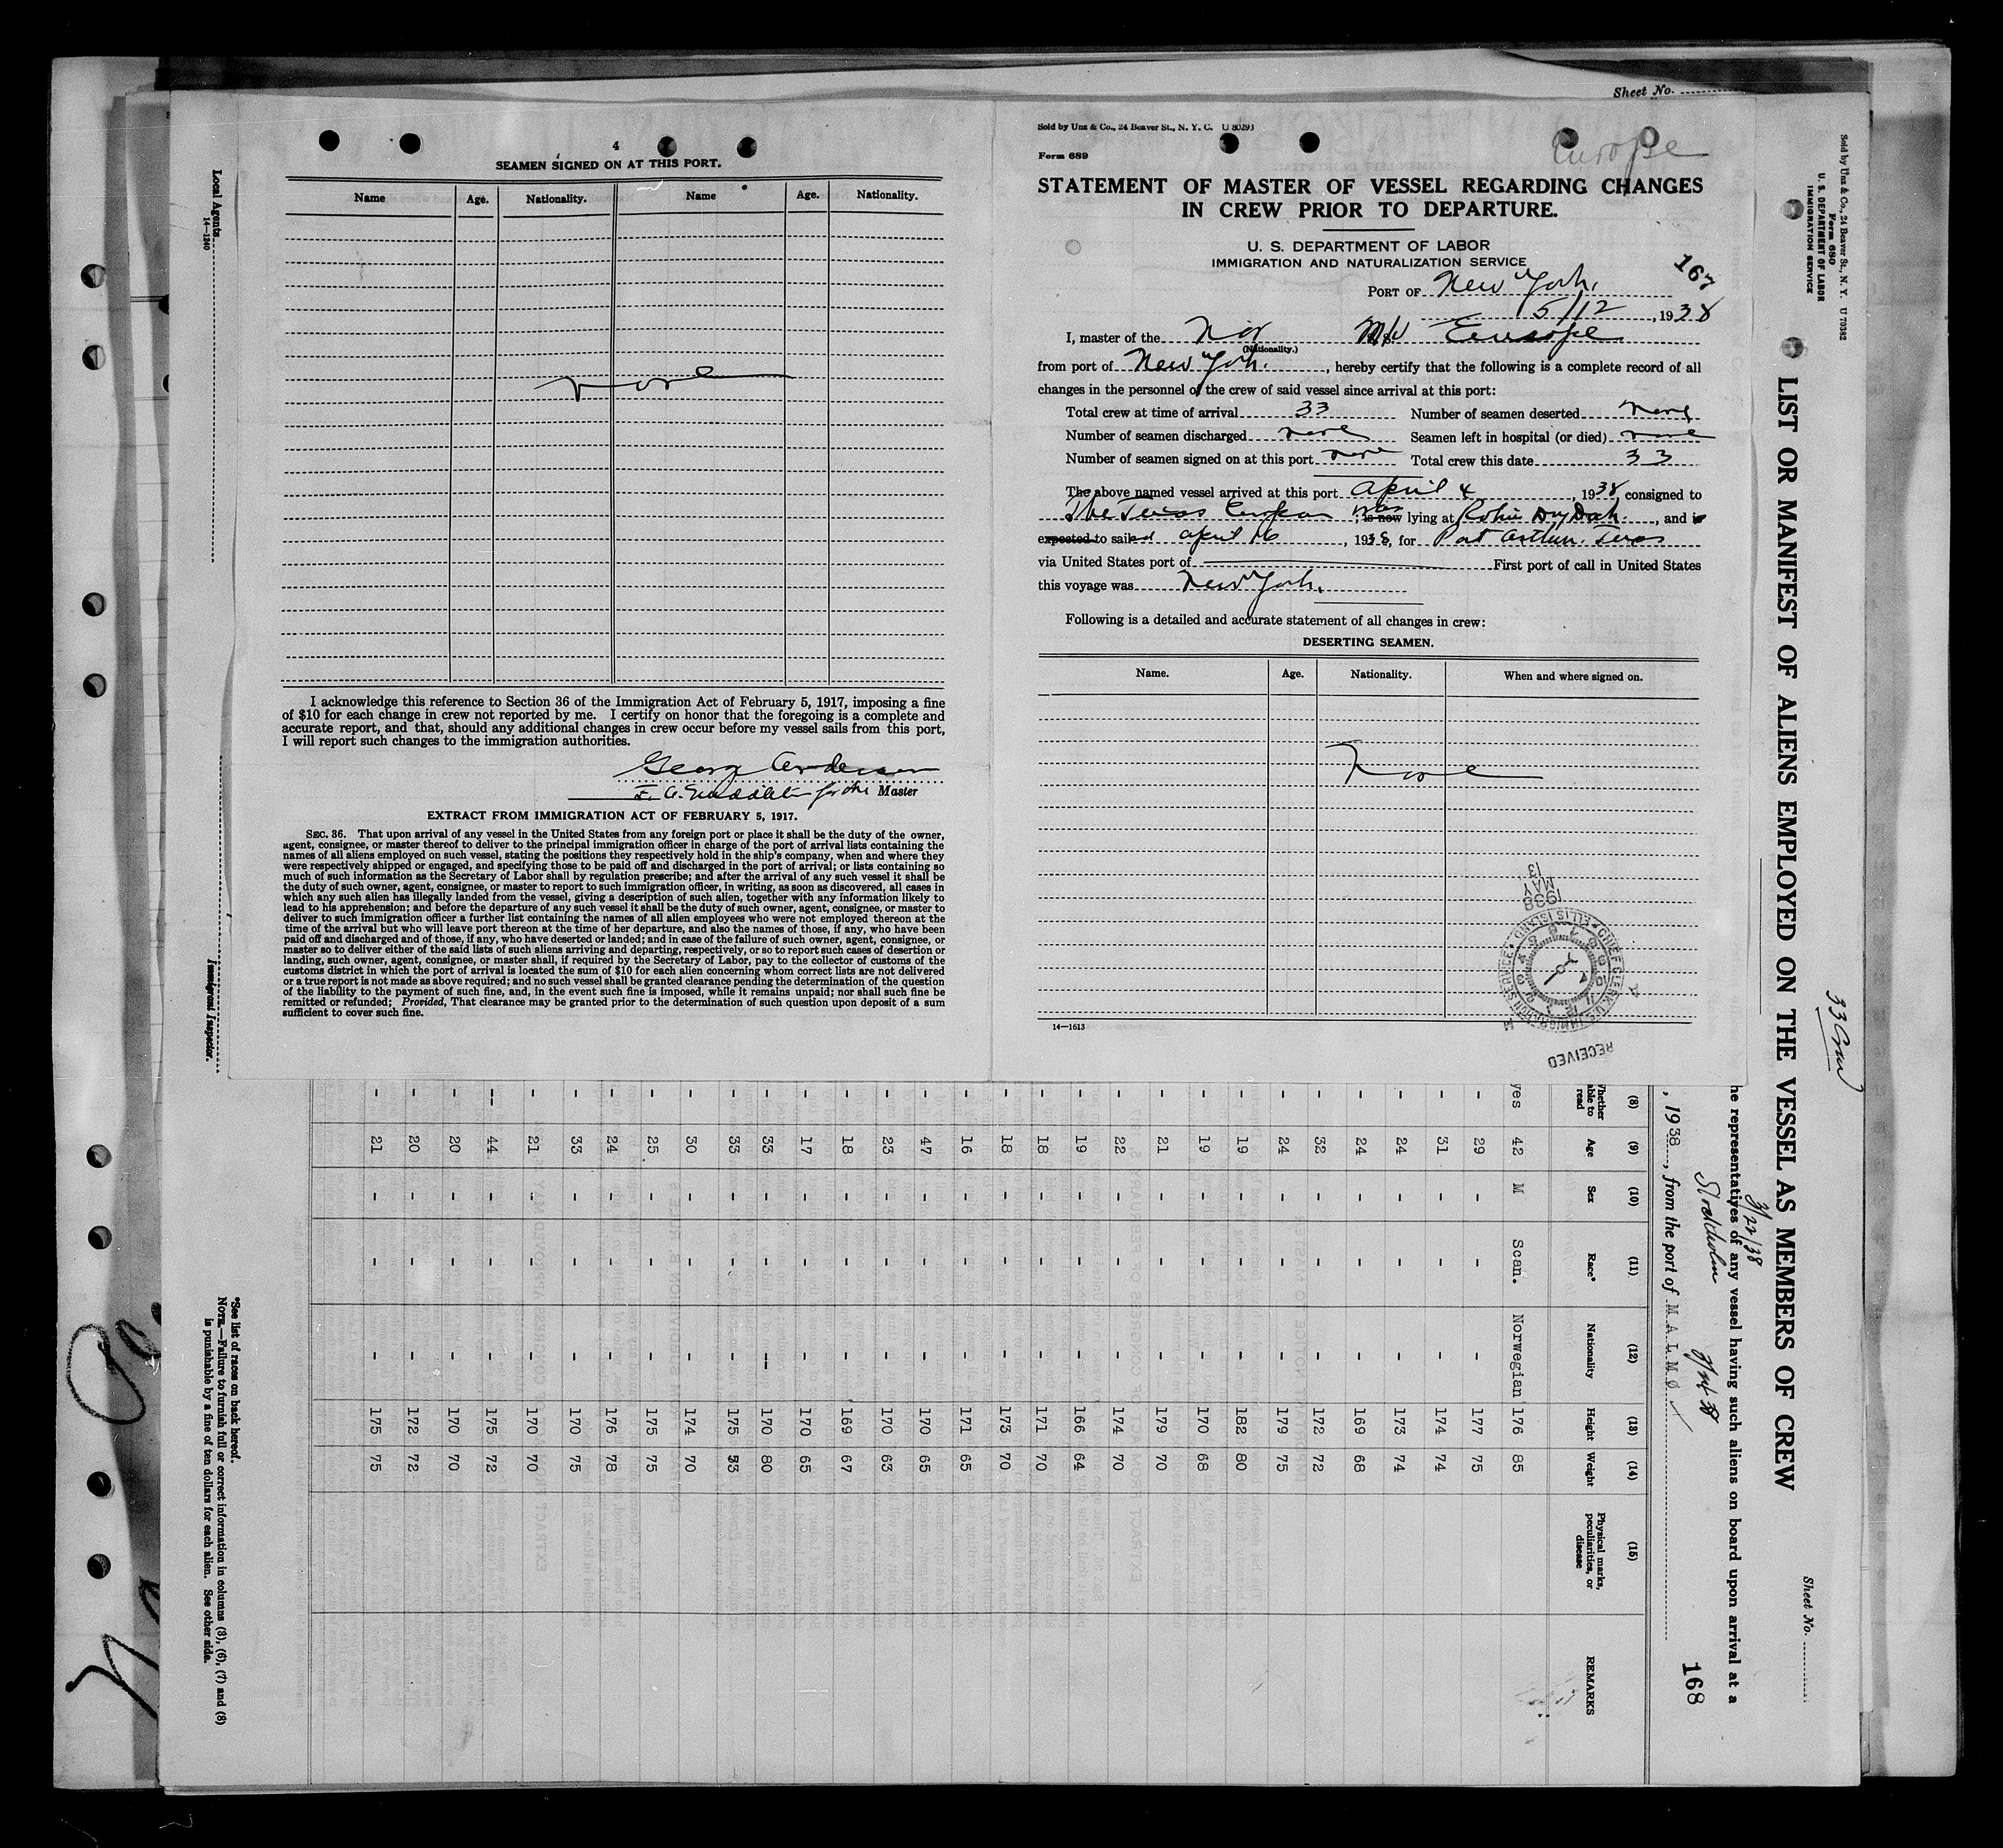 Sheet No.
4
SEAMEN SIGNED ON AT THIS PORT.
Name Age. Nationality. Name Age. Nationality.
none
I acknowledge this reference to Section 36 of the Immigration Act of February 5, 1917, imposing a fine
of $10 for each change in crew not reported by me. I certify on honor that the foregoing is a complete and
accurate report, and that, should any additional changes in crew occur before my vessel sails from this port,
I will report such changes to the immigration authorities.
Georg Andersen
for the Master
EXTRACT FROM IMMIGRATION ACT OF FEBRUARY 5, 1917.
SEC. 36. That upon arrival of any vessel in the United States from any foreign port or place it shall be the duty of the owner,
agent, consignee, or master thereof to deliver to the principal immigration officer in charge of the port of arrival lists containing the
names of all aliens employed on such vessel, stating the positions they respectively hold in the ship's company, when and where they
were respectively shipped or engaged, and specifying those to be paid off and discharged in the port of arrival; or lists containing so
much of such information as the Secretary of Labor shall by regulation prescribe; and after the arrival of any such vessel it shall be
the duty of such owner, agent, consignee, or master to report to such immigration officer, in writing, as soon as discovered, all cases in
which any such alien has illegally landed from the vessel, giving a description of such alien, together with any information likely to
lead to his apprehension; and before the departure of any such vessel it shall be the duty of such owner, agent, consignee, or master to
deliver to such immigration officer a further list containing the names of all alien employees who were not employed thereon at the
time of the arrival but who will leave port thereon at the time of her departure, and also the names of those, if any, who have been
paid off and discharged and of those, if any, who have deserted or landed; and in case of the failure of such owner, agent, consignee, or
master so to deliver either of the said lists of such aliens arriving and departing, respectively, or so to report such cases of desertion or
landing, such owner, agent, consignee, or master shall, if required by the Secretary of Labor, pay to the collector of customs of the
customs district in which the port of arrival is located the sum of $10 for each alien concerning whom correct lists are not delivered
or a true report is not made as above required; and no such vessel shall be granted clearance pending the determination of the question
of the liability to the payment of such fine, and, in the event such fine is imposed, while it remains unpaid; nor shall such fine be
remitted or refunded; Provided, That clearance may be granted prior to the determination of such question upon deposit of a sum
sufficient to cover such fine.
Sold by Unz & Co., 24 Beaver St., N. Y. C. U 80293
Form 689
Europe
STATEMENT OF MASTER OF VESSEL REGARDING CHANGES
IN CREW PRIOR TO DEPARTURE.
U. S. DEPARTMENT OF LABOR
IMMIGRATION AND NATURALIZATION SERVICE
167
PORT OF New York.
5/12, 1938
I, master of the Nor M/V Europe
(Nationality.)
from port of New York., hereby certify that the following is a complete record of all
changes in the personnel of the crew of said vessel since arrival at this port:
Total crew at time of arrival 33 Number of seamen deserted none
Number of seamen discharged none Seamen left in hospital (or died) none
Number of seamen signed on at this port none Total crew this date 33
The above named vessel arrived at this port April 4, 1938, consigned to
The Texas Company, is now was lying at Robin Dry Dock, and is
expected to sailed April 16, 1938, for Port Arthur, Texas
via United States port of First port of call in United States
this voyage was New York.
Following is a detailed and accurate statement of all changes in crew:
DESERTING SEAMEN.
Name. Age. Nationality. When and where signed on.
None
14—1613
RECEIVED
CHIEF CLERK U.S. IMMIGRATION SERVICE ELLIS ISLAND
1938 MAY 13
Sold by Unz & Co., 24 Beaver St., N. Y. U 79382
Form 680
U. S. DEPARTMENT OF LABOR
IMMIGRATION SERVICE
33 Crew
Sheet No.
LIST OR MANIFEST OF ALIENS EMPLOYED ON THE VESSEL AS MEMBERS OF CREW
he representatives of any vessel having such aliens on board upon arrival at a
3/22/38
Stockholm
, 1938, from the port of M A L M Ø
168
(8) (9) (10) (11) (12) (13) (14) (15)
Whether able to read Age Sex Race* Nationality Height Weight Physical marks, peculiarities, or disease REMARKS
yes 42 M Scan. Norwegian 176 85
- 29 - - - 177 75
- 31 - - - 174 74
- 24 - - - 173 74
- 24 - - - 169 68
- 32 - - - 172 72
- 24 - - - 179 75
- 19 - - - 182 80
- 19 - - - 170 68
- 21 - - - 179 70
- 22 - - - 174 70
- 19 - - - 166 64
- 18 - - - 171 70
- 18 - - - 173 70
- 16 - - - 171 65
- 47 - - - 170 65
- 23 - - - 170 63
- 18 - - - 169 67
- 17 - - - 170 65
- 33 - - -- 170 80
- 33 - - - 175
- 30 - - - 174 70
- 25 - - - 175 75
- 24 - - - 176 78
- 33 - - - 170 75
- 21 - - - 170 70
-- 44 - - - 175 72
- 20 - - - 170 70
- 20 - - - 172 72
- 21 - - - 175 75
*See list of races on back hereof.
NOTE.—Failure to furnish full or correct information in columns (3), (6), (7) and (8)
is punishable by a fine of ten dollars for each alien. See other side.
Local Agents
14—1240
Immigrant Inspector.